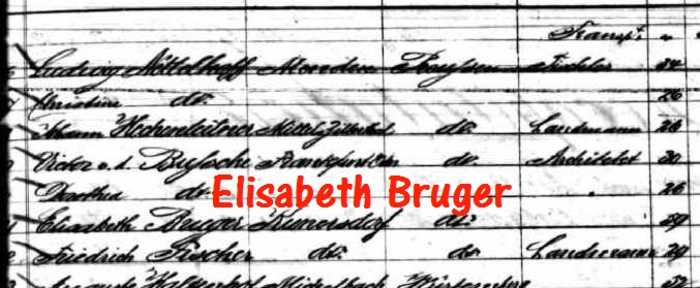 Transpt. "
Ludwig Nöttelhoff Menden Preussen Tischler 34
Christine do. 26
Johann Hechenleitner Zillerthal do. Landmann 26
Victor v. d. Bussche Frankfurt do. Architekt 30
Dorothea do. " 26
Elisabeth Bruger
Elisabeth Bruger Rümersdorf do. 29
Friedrich Fischer do. do. Landmann 29
Michelbach 32